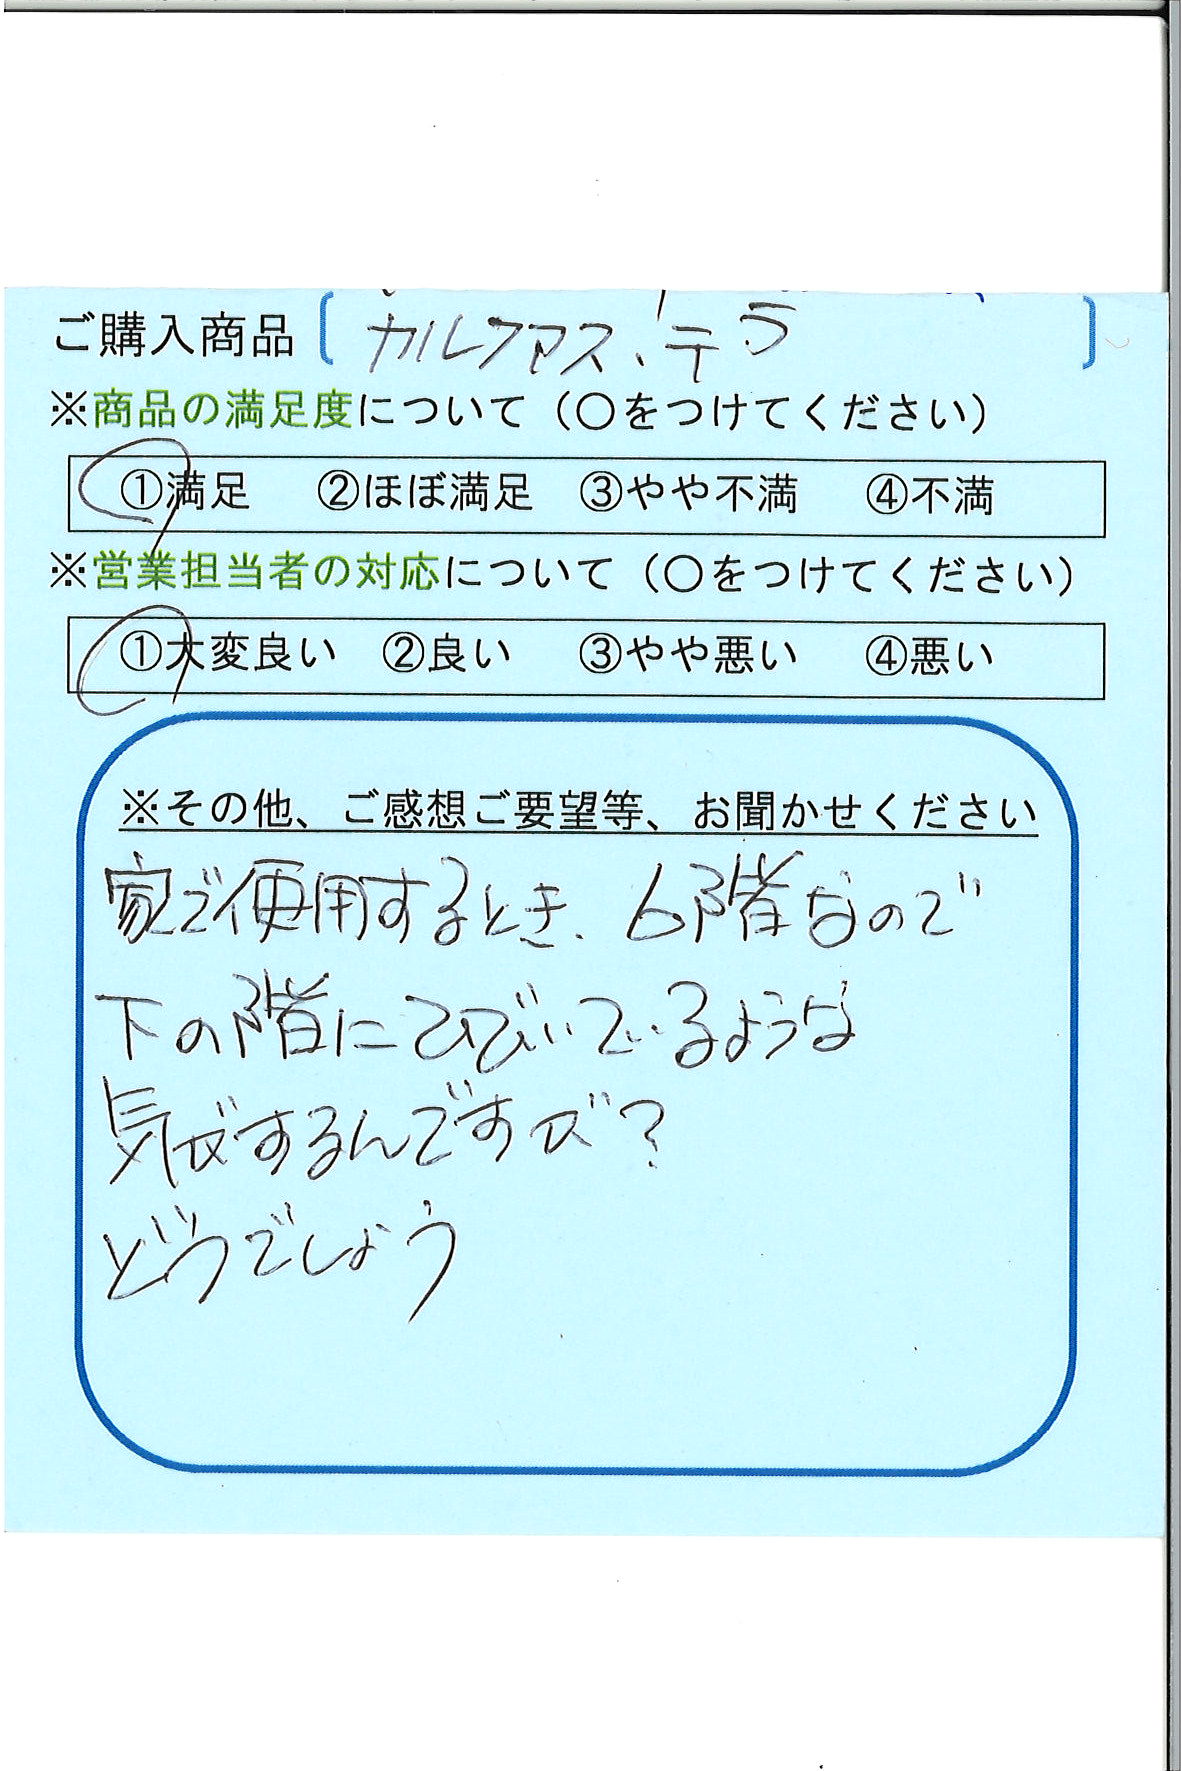 ご購入商品 〔カルファス、テラ〕
※商品の満足度について（○をつけてください）
①満足 ②ほぼ満足 ③やや不満 ④不満
※営業担当者の対応について（○をつけてください）
①大変良い ②良い ③やや悪い ④悪い
※その他、ご感想ご要望等、お聞かせください
家で使用するとき、6階なので
下の階にひびいているような
気がするんですが?
どうでしょう